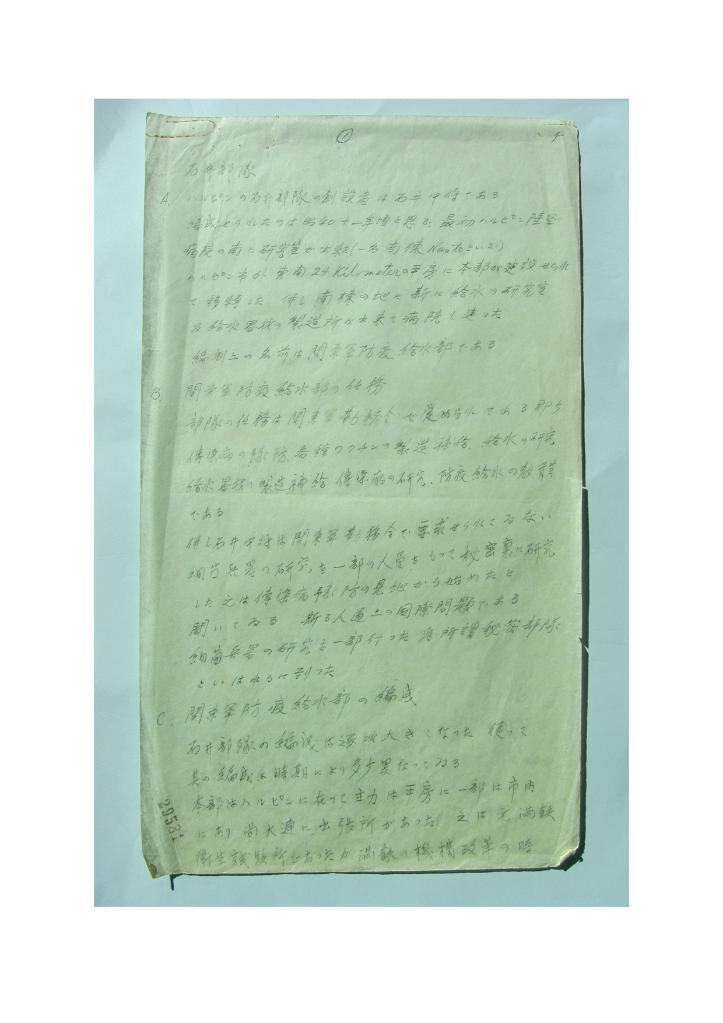 ① 1
石井部隊
A. ハルピンの石井部隊の創設者は石井中将である
編成せられたのは昭和十一年頃と思る、最初ハルピン陸軍
病院の南に研究室が出来(一名南棟 Nantoといふ)
ハルピン市外東南24 Kilometerの平房に本部が建設せられ
て移転した 併し南棟の地に新に給水の研究室
及給水器材の製造所が出来て病院も建った
編制上の名前は関東軍防疫給水部である
B. 関東軍防疫給水部の任務
部隊の任務は関東軍勤務令で定められてある即ち
傳染病の予防、各種ワクチンの製造補給、給水の研究
給水器材の製造補給 傳染病の研究、防疫給水の教育
である
併し石井中将は関東軍勤務令で要求せられてゐない
細菌兵器の研究を一部の人員をもって秘密裏に研究
した 之は傳染病予防の見地から始めたと
聞いてゐる 斯る人道上の国際問題である
細菌兵器の研究を一部行った為所謂秘密部隊
といはれるに到った
C. 関東軍防疫給水部の編成
石井部隊の編成は逐次大きくなった 従って
其の編成は時期により多少異なってゐる
本部はハルピンに在って主力は平房に一部は市内
にあり 尚大連に出張所があった 之は元満鉄
衛生試験所であったが満鉄の機構改革の時
29531